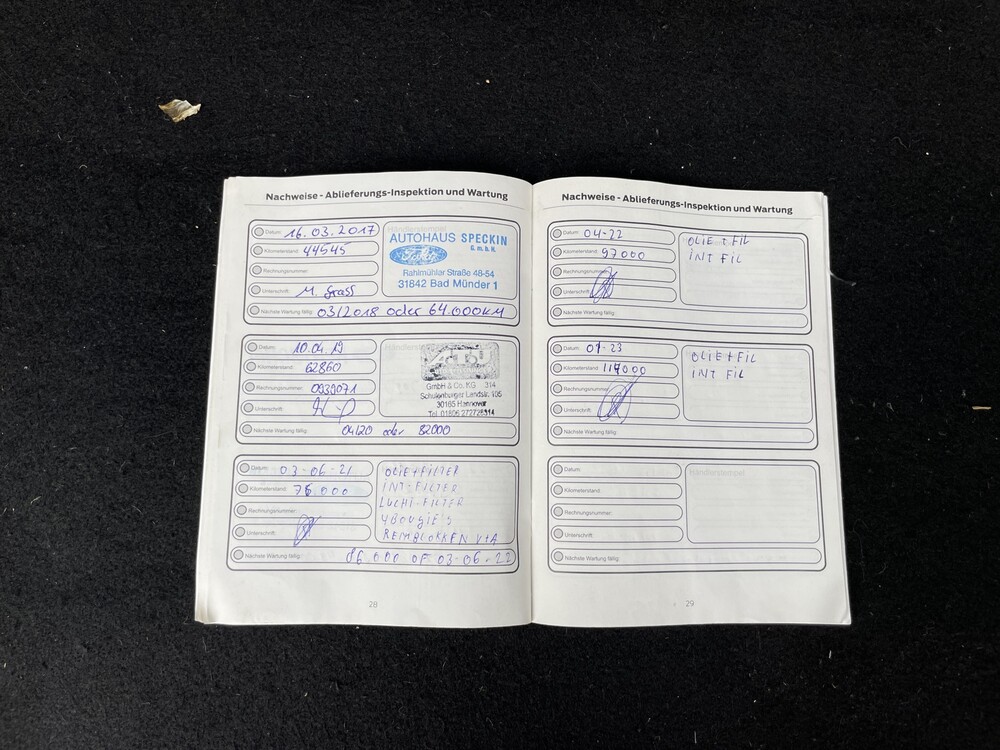 Nachweise - Ablieferungs-Inspektion und Wartung
Datum: 16.03.2017
Kilometerstand: 44545
Rechnungsnummer:
Unterschrift: M. Grass
Nächste Wartung fällig: 03/2018 oder 64.000KM
AUTOHAUS SPECKIN
G.m.b.H.
Ford
Rahlmühler Straße 48-54
31842 Bad Münder 1
Datum: 10.04.19
Kilometerstand: 62860
Rechnungsnummer:
Unterschrift:
Nächste Wartung fällig: 04/20 oder 82000
GmbH & Co. KG 314
Schulenburger Landstr. 105
30165 Hannover
Datum: 03-06-21
Kilometerstand: 76.000
Rechnungsnummer:
Unterschrift:
Nächste Wartung fällig: 86.000 OF 03-06-22
OLIE+FILTER
INT-FILTER
LUCHT-FILTER
4 BOUGIE'S
REMBLOKKEN V+A
28
Nachweise - Ablieferungs-Inspektion und Wartung
Datum: 04-22
Kilometerstand: 97000
Rechnungsnummer:
Unterschrift:
Nächste Wartung fällig:
OLIE + FIL
INT FIL
Datum:
Kilometerstand:
Rechnungsnummer:
Unterschrift:
Nächste Wartung fällig:
OLIE+FIL
INT FIL
Datum:
Kilometerstand:
Rechnungsnummer:
Unterschrift:
Nächste Wartung fällig:
Händlerstempel
29